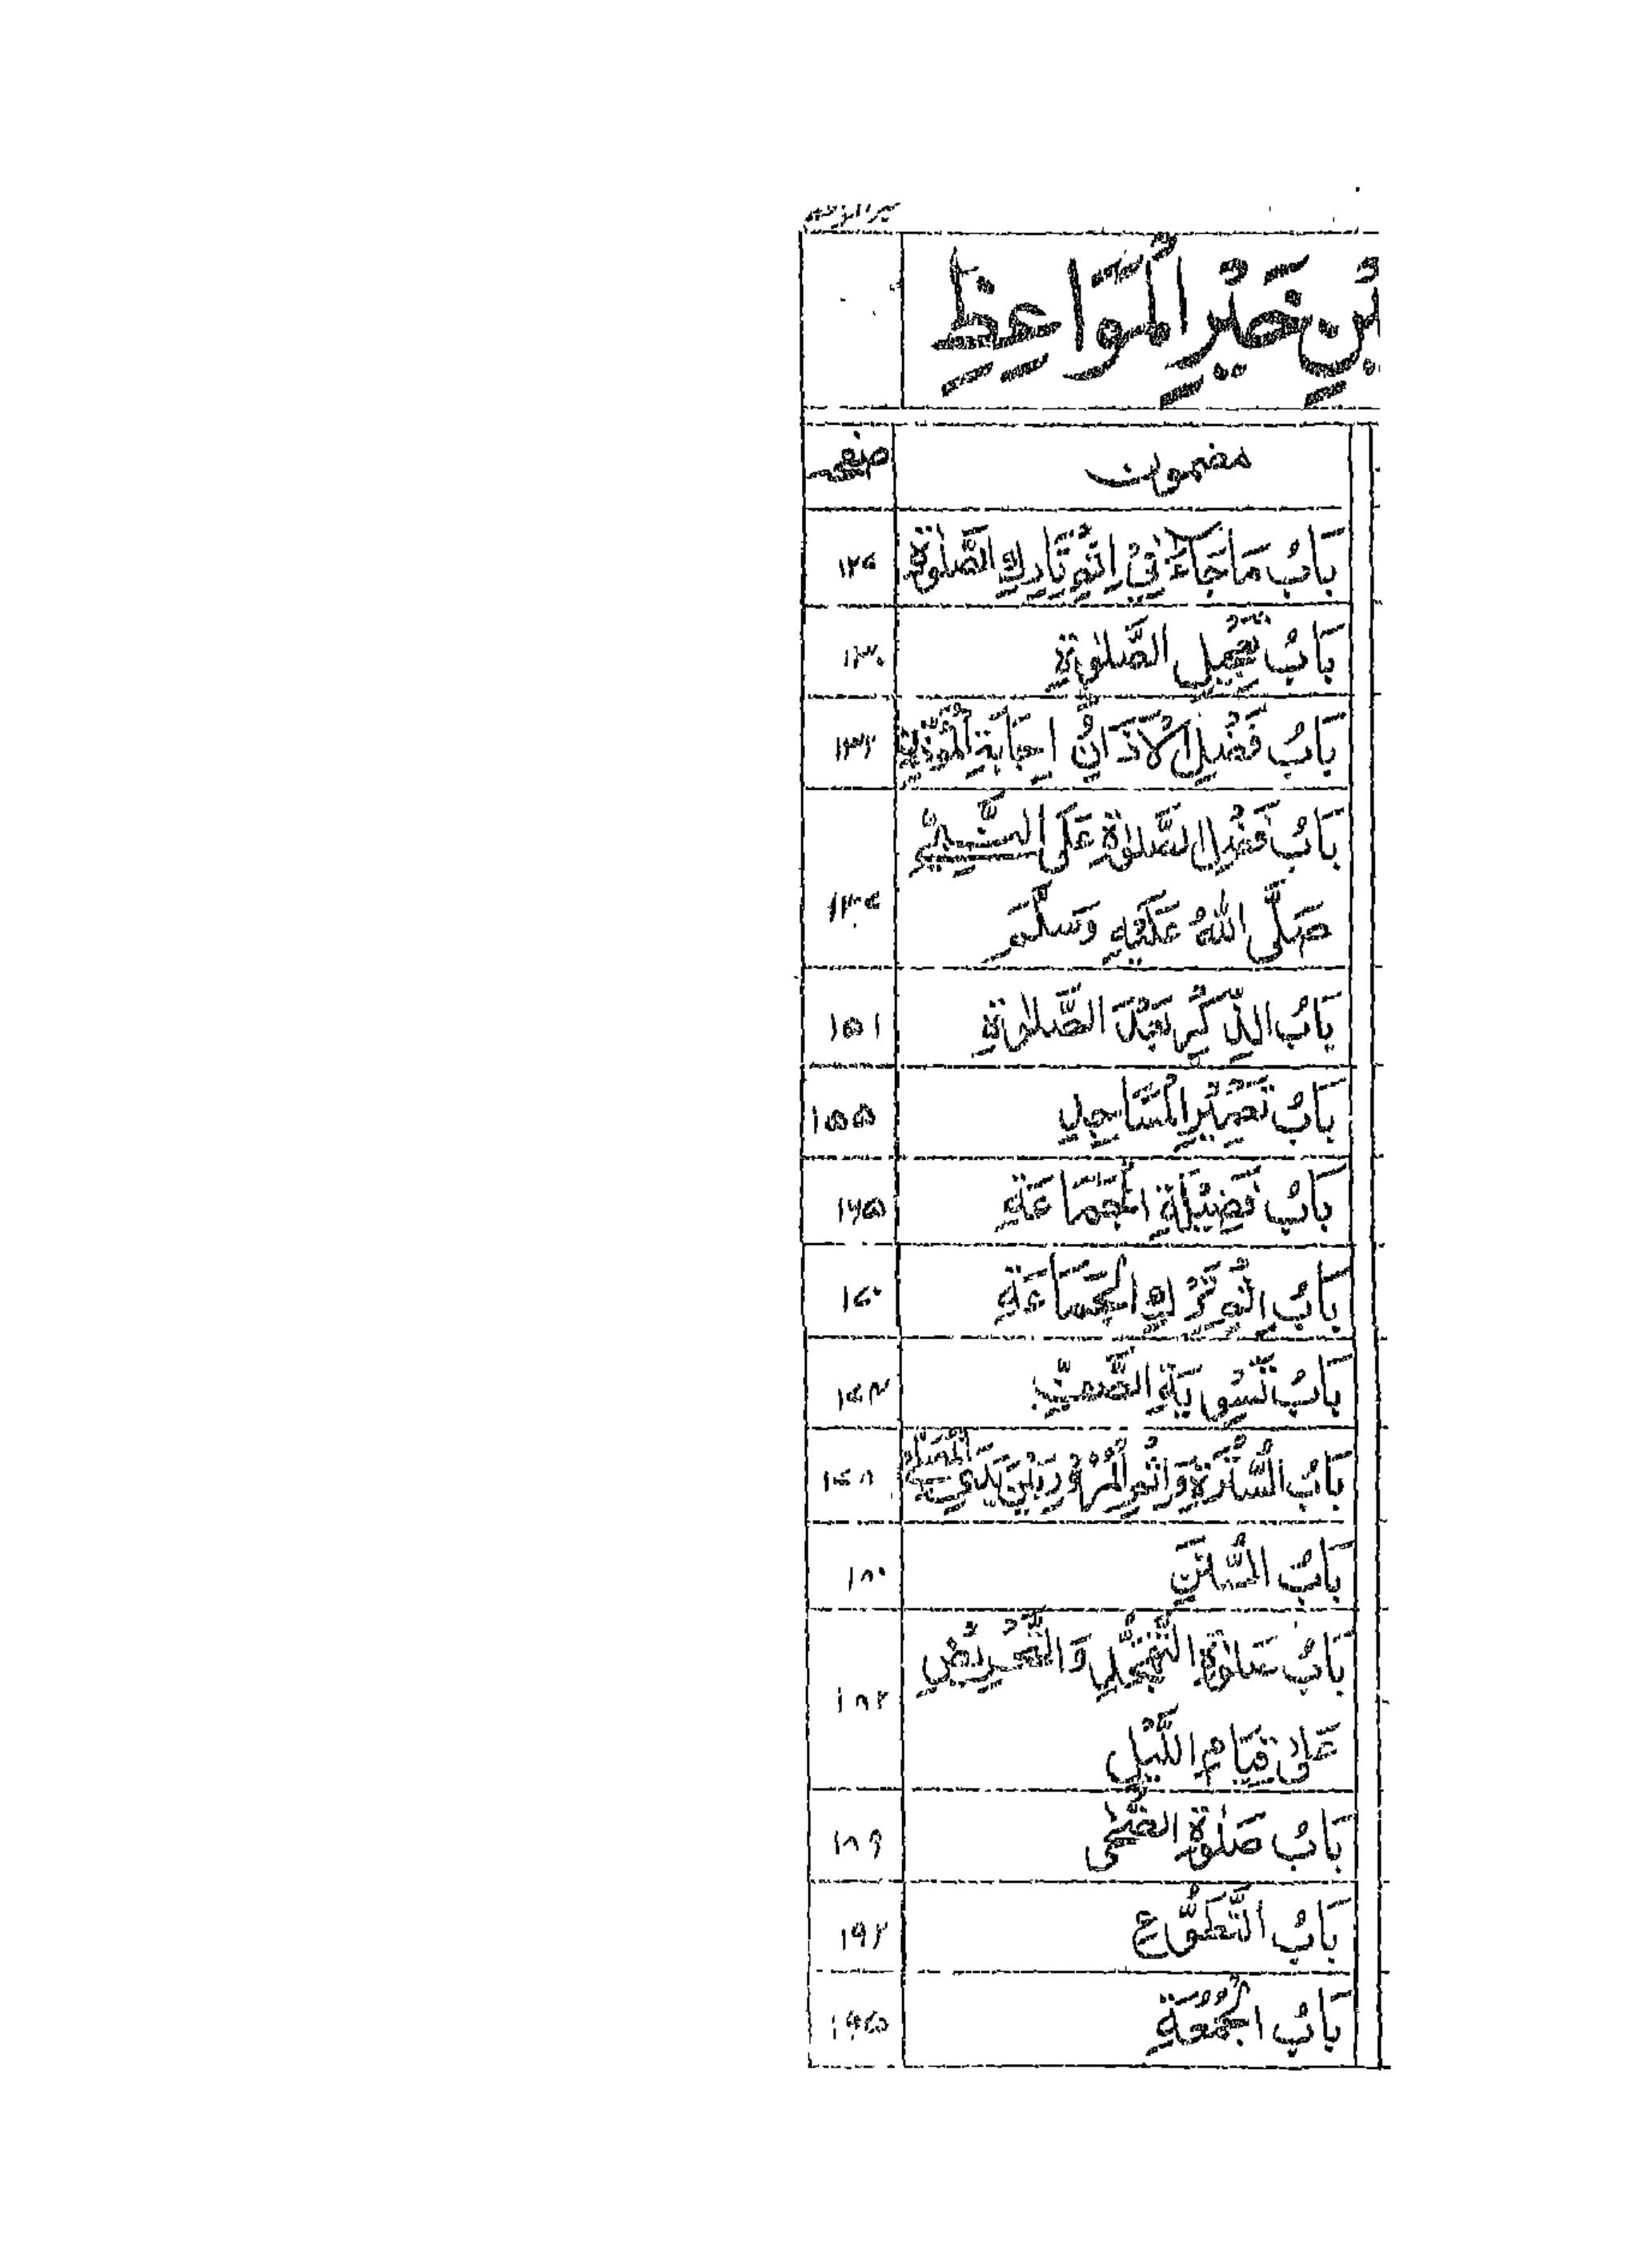 خَيْرِ الْمَوَاعِظِ
مضمون صفحہ
بَابُ مَا جَاءَ فِيْ اِثْمِ تَارِكِ الصَّلٰوةِ
بَابُ تَعْجِيْلِ الصَّلٰوةِ ۱۳۰
بَابُ فَضْلِ الْاَذَانِ اِجَابَةِ الْمُؤَذِّنِ ۱۳۲
بَابُ فَضْلِ الصَّلٰوةِ عَلَى النَّبِيِّ
صَلَّى اللّٰهُ عَلَيْهِ وَسَلَّمَ
بَابُ الذِّكْرِ بَعْدَ الصَّلٰوةِ ۱۵۱
بَابُ تَعْمِيْرِ الْمَسَاجِدِ ۱۵۵
بَابُ فَضِيْلَةِ الْجَمَاعَةِ ۱۶۵
بَابُ اِثْمِ تَرْكِ الْجَمَاعَةِ ۱۷۰
بَابُ تَسْوِيَةِ الصَّفِّ ۱۷۴
بَابُ السُّتْرَةِ وَاِثْمِ الْمُرُوْرِ بَيْنَ يَدَيِ الْمُصَلِّيْ ۱۷۸
بَابُ السُّنَنِ ۱۸۰
بَابُ صَلٰوةِ التَّهَجُّدِ وَالتَّحْرِيْضِ
عَلٰى قِيَامِ اللَّيْلِ ۱۸۲
بَابُ صَلٰوةِ الضُّحٰى ۱۸۹
بَابُ التَّطَوُّعِ ۱۹۲
بَابُ الْجُمُعَةِ ۱۹۵